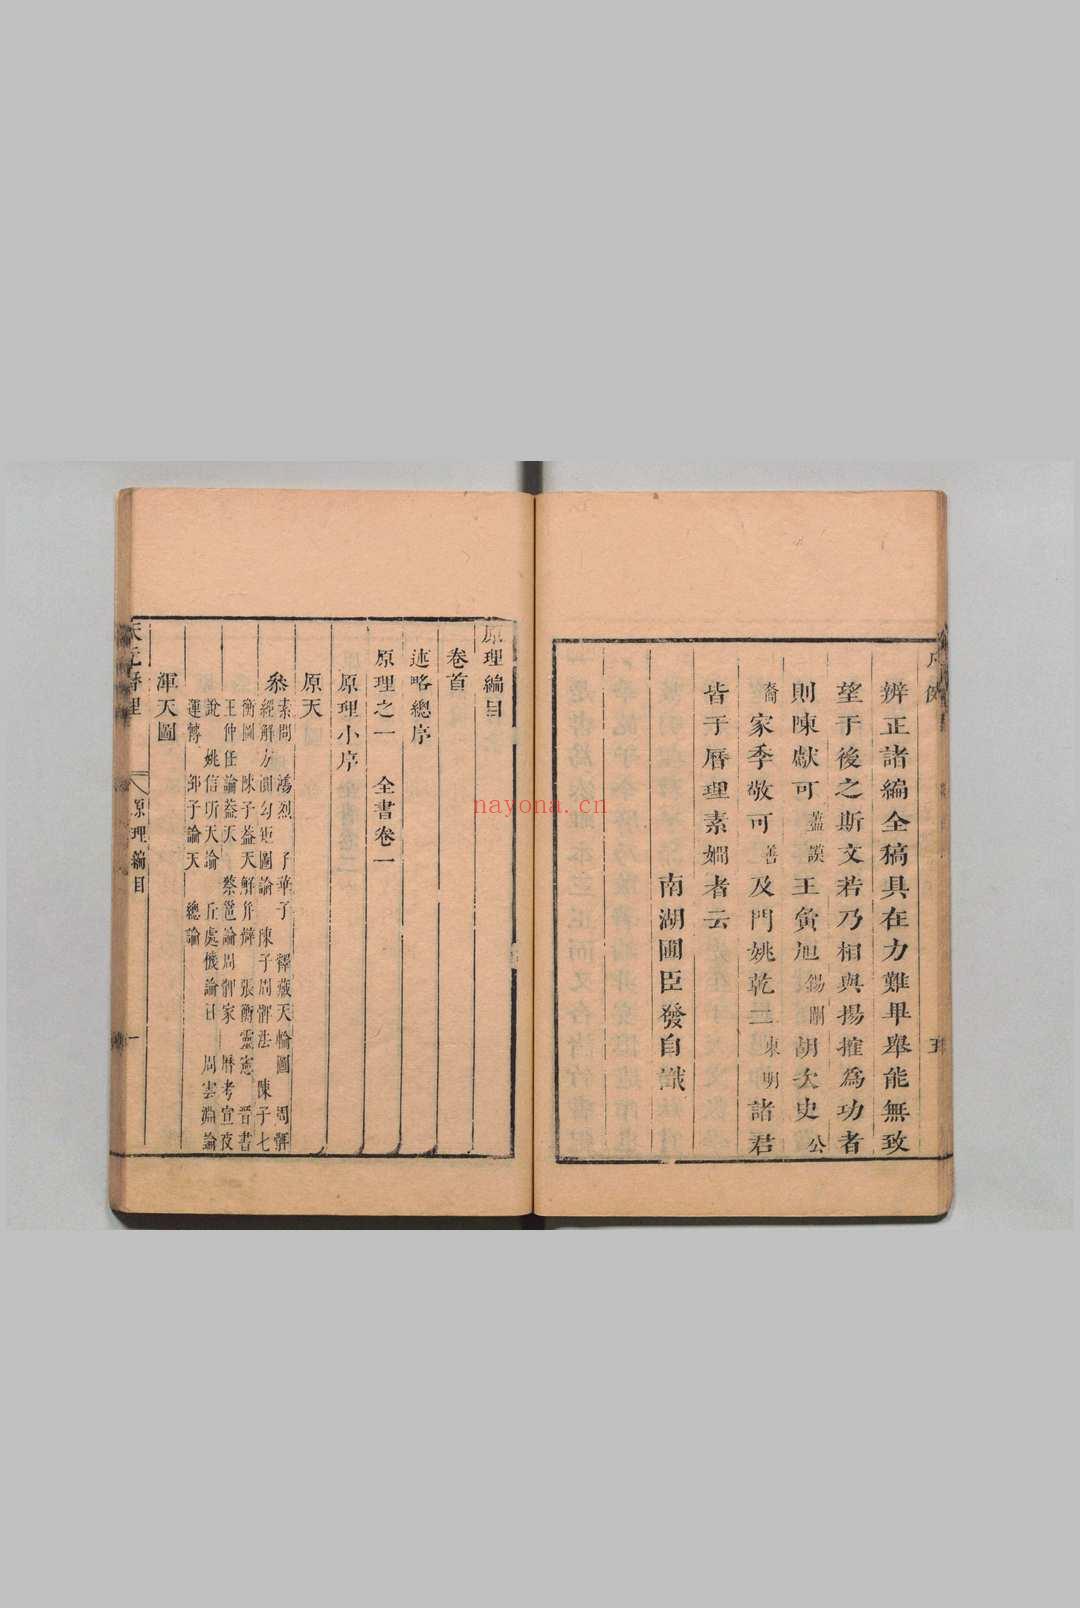 辨正諸編全稿具在力難畢舉能無致
望于後之斯文若乃相與揚搉為功者
則陳獻可藎謨王寅旭錫闡胡次史公
裔家季敬可善及門姚乾三東明諸君
皆于曆理素嫺者云
南湖圃臣發自識
五
原理編目
卷首
述略總序
原理之一 全書卷一
原理小序
原天
叅素問 鴻烈 子華子 釋藏天輪圖 周髀
經解方圓勾股圖論 陳子周髀法 陳子七
衡圖 陳子蓋天解并辯 張衡靈憲 晉書
王仲任論蓋天 蔡邕論周髀家 曆考宣夜
說 姚信昕天論 丘處機論日 周雲淵論
運轉 邱子論天 總論
渾天圖
天元曆理
原理編目
一
nayona.cn